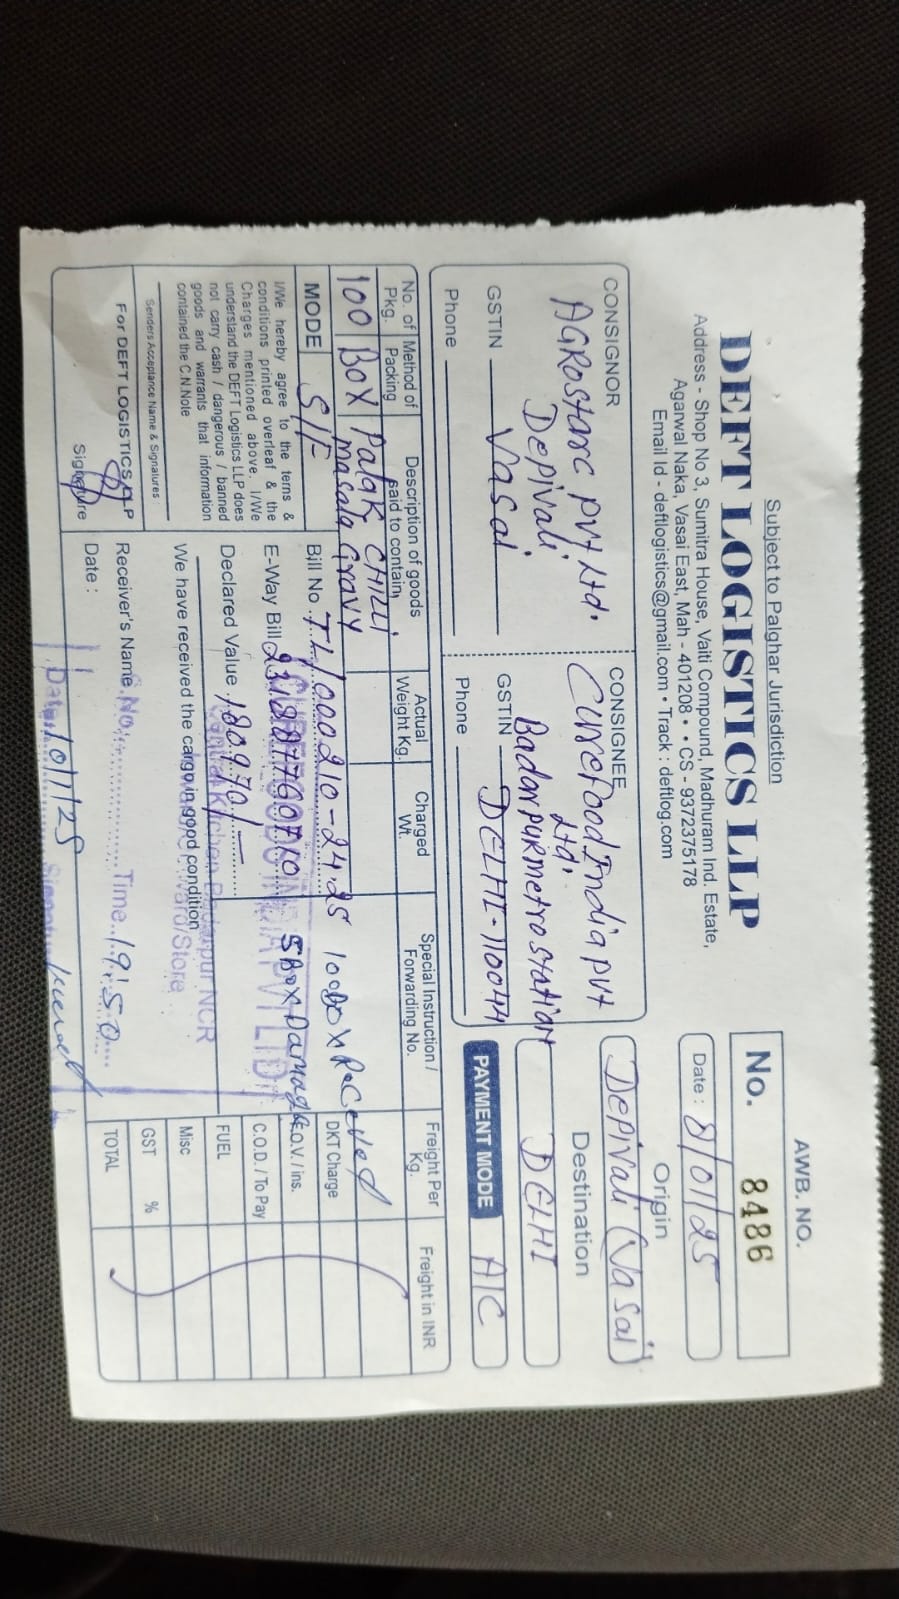 Subject to Palghar Jurisdiction
DEFT LOGISTICS LLP
Address - Shop No 3, Sumitra House, Vaiti Compound, Madhuram Ind. Estate,
Agarwal Naka, Vasai East, Mah - 401208 • • CS - 9372375178
Email Id - deftlogistics@gmail.com • Track : deftlog.com
AWB. NO.
No. 8486
Date : 8/01/25
Origin
Depivali (Vasai)
Destination
DELHI
PAYMENT MODE A/C
CONSIGNOR
AGROstarc pvt Ltd.
Depivali
GSTIN Vasai
Phone
CONSIGNEE
Curefood India pvt
Ltd.
Badarpur metro station
GSTIN DELHI-110044
Phone
No. of Pkg.
Method of Packing
Description of goods said to contain
Actual Weight Kg.
Charged Wt.
Special Instruction / Forwarding No.
Freight Per Kg.
Freight in INR
100 BOX Palak CHILLI
masala Gravy
100 Box Receved
5 Box Damage
MODE S/F
Bill No. TI/000210-24.25
E-Way Bill 231887760710
Declared Value 180970/-
I/We hereby agree to the terns &
conditions printed overleaf & the
Charges mentioned above. I/We
understand the DEFT Logistics LLP does
not carry cash / dangerous / banned
goods and warrants that information
contained the C.N.Note
Senders Acceptance Name & Signatures
For DEFT LOGISTICS LLP
Signature
We have received the cargo in good condition
Receiver's Name
No. Time 19:50
Date :
Date 10/1/25
DKT Charge
F.O.V. / ins.
C.O.D. / To Pay
FUEL
Misc
GST %
TOTAL